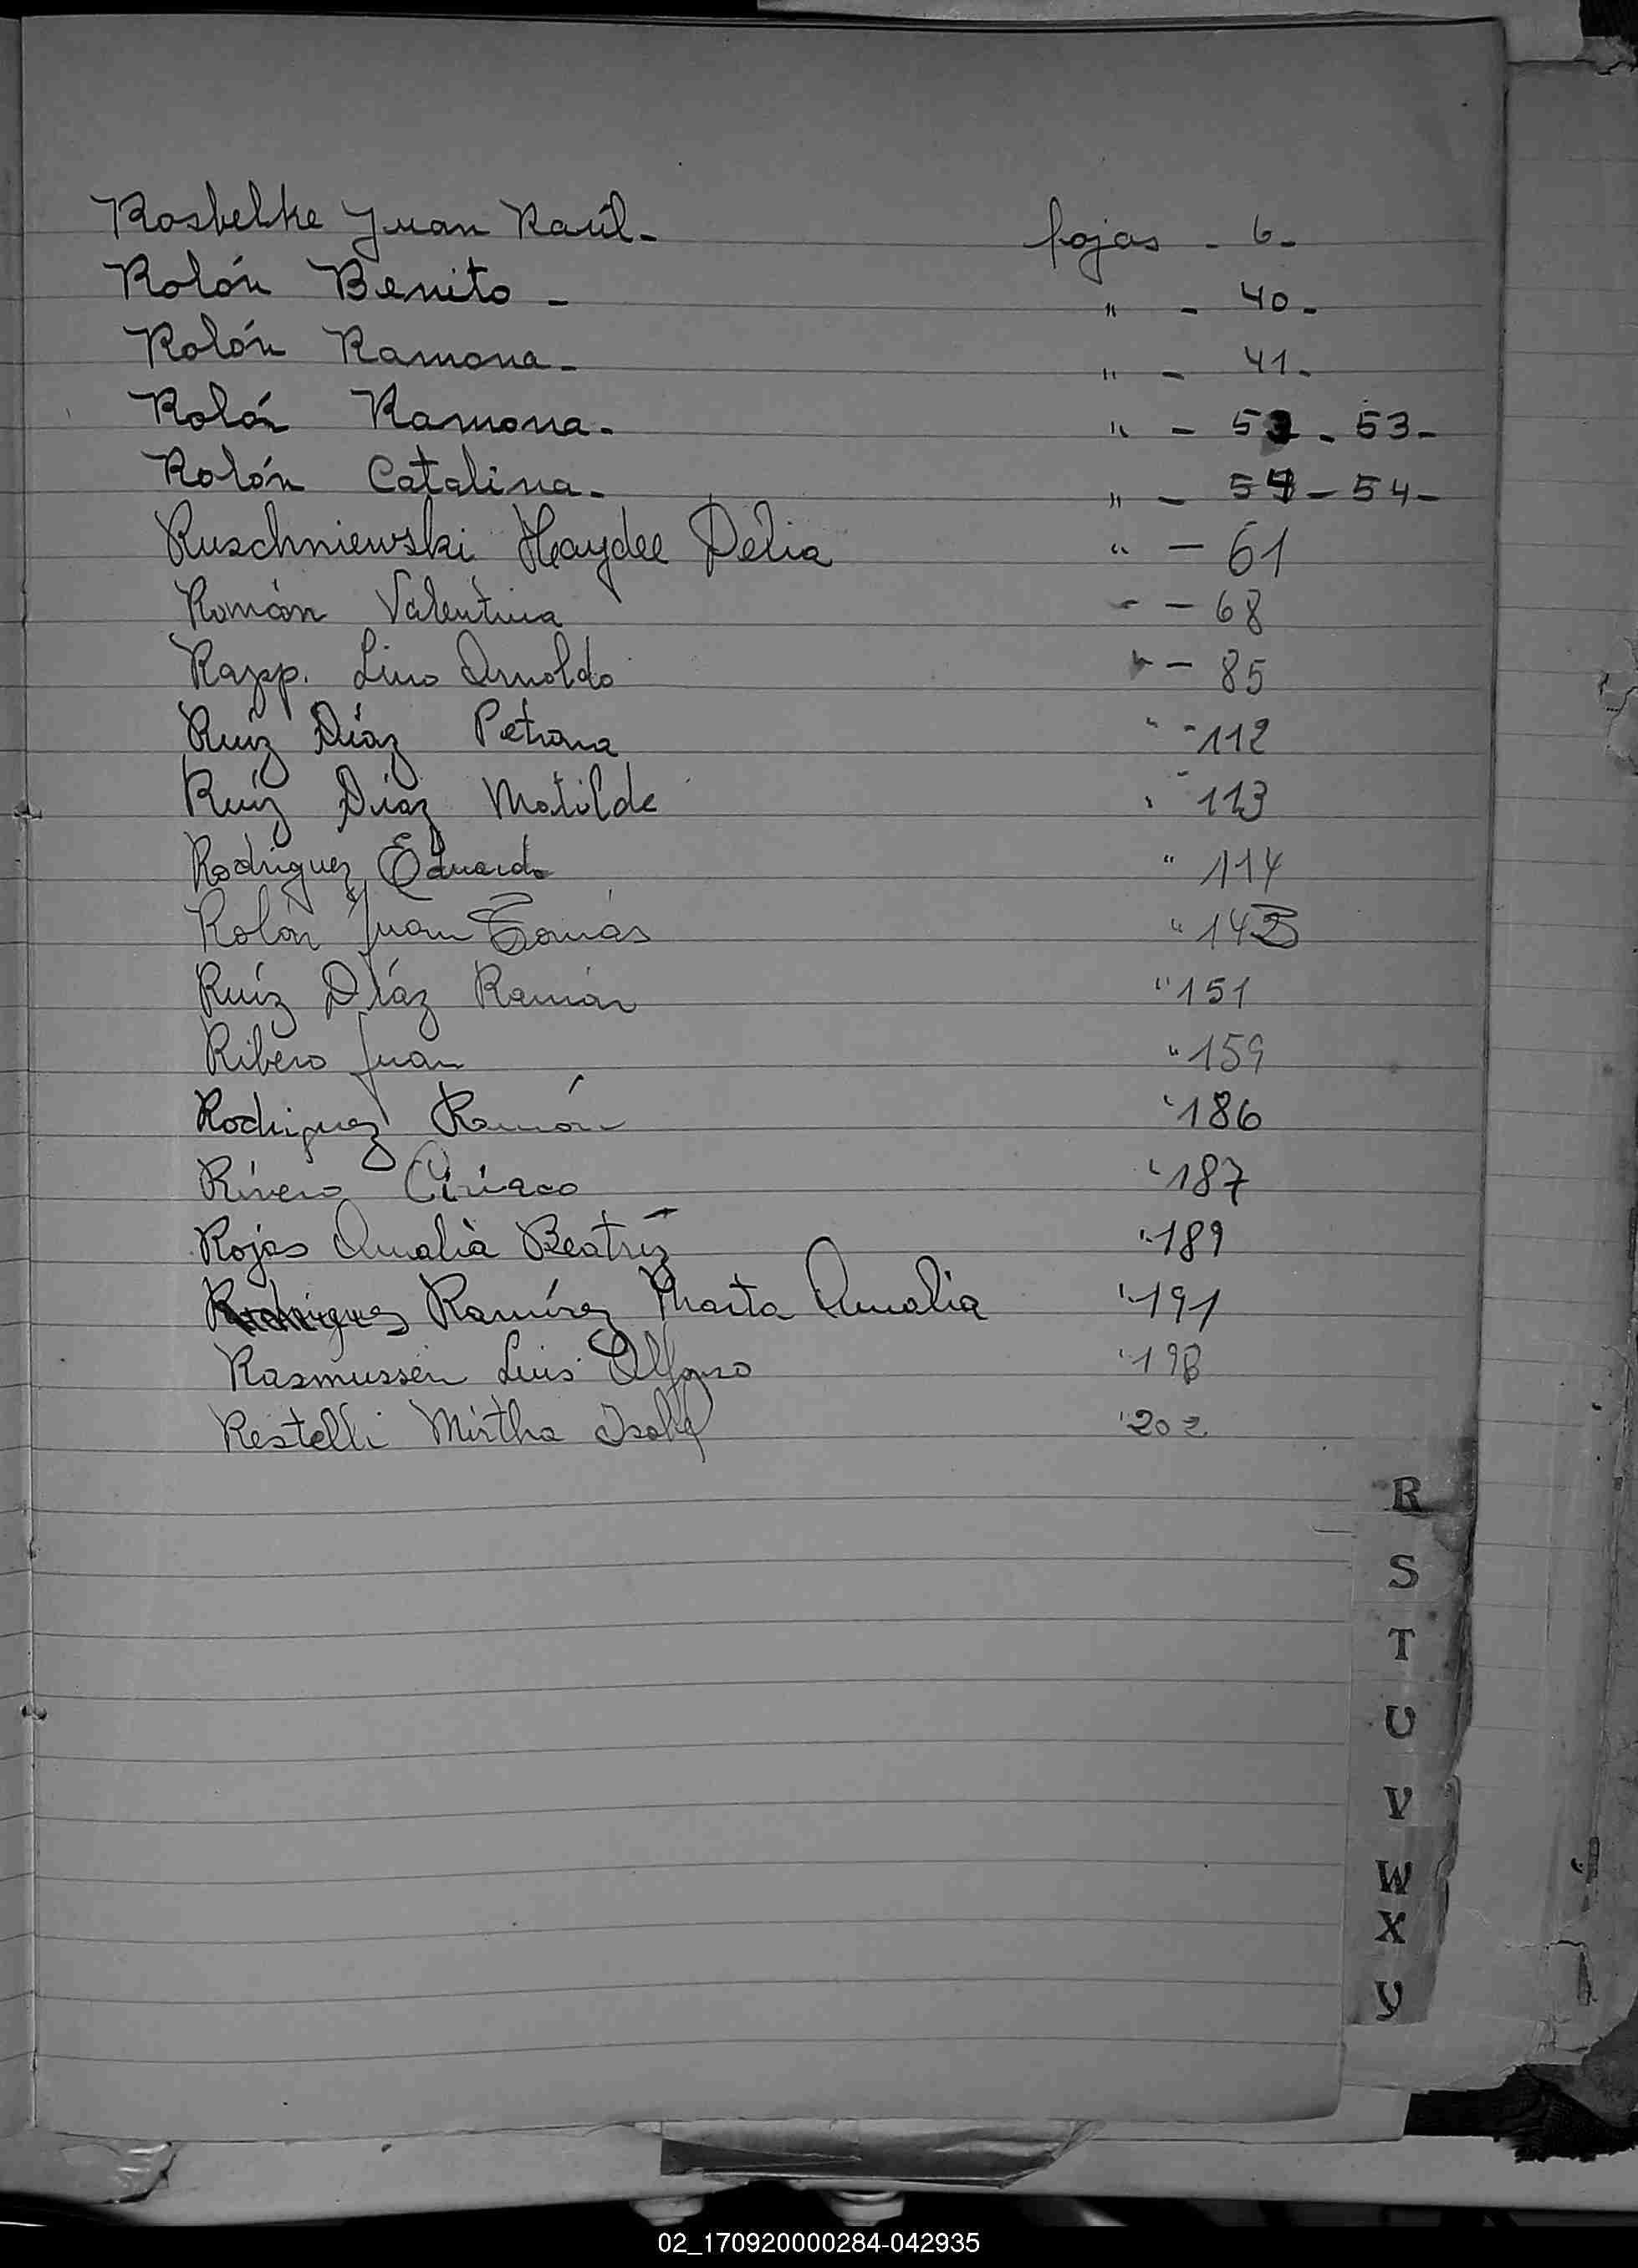 Rosbelke Juan Raúl - fojas - 6 -
Rolón Benito - " - 40 -
Rolón Ramona - " - 41 -
Rolón Ramona - " - 53 - 53 -
Rolón Catalina - " - 54 - 54 -
Ruschniewski Haydee Delia " - 61
Román Valentina " - 68
Rapp. Lino Arnoldo " - 85
Ruíz Díaz Petrona " - 112
Ruíz Díaz Matilde " - 113
Rodríguez Eduardo " 114
Rolón Juan Tomás " 143
Ruíz Díaz Ramón " 151
Ribero Juan " 159
Rodriguez Ramón " 186
Rivero Ciriaco " 187
Rojas Amalia Beatríz " 189
Rodriguez Ramírez Marta Amalia " 191
Rasmussen Luis Alfonso " 198
Restelli Mirtha Isabel " 202
R
S
T
U
V
W
X
Y
02_170920000284-042935